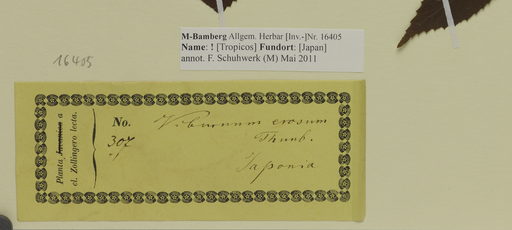 M-Bamberg Allgem. Herbar [Inv.-]Nr. 16405
Name: ! [Tropicos] Fundort: [Japan]
annot. F. Schuhwerk (M) Mai 2011
16405
Planta Javanica a
cl. Zollingero lecta.
No.
307
Viburnum erosum
Thunb.
Japonia